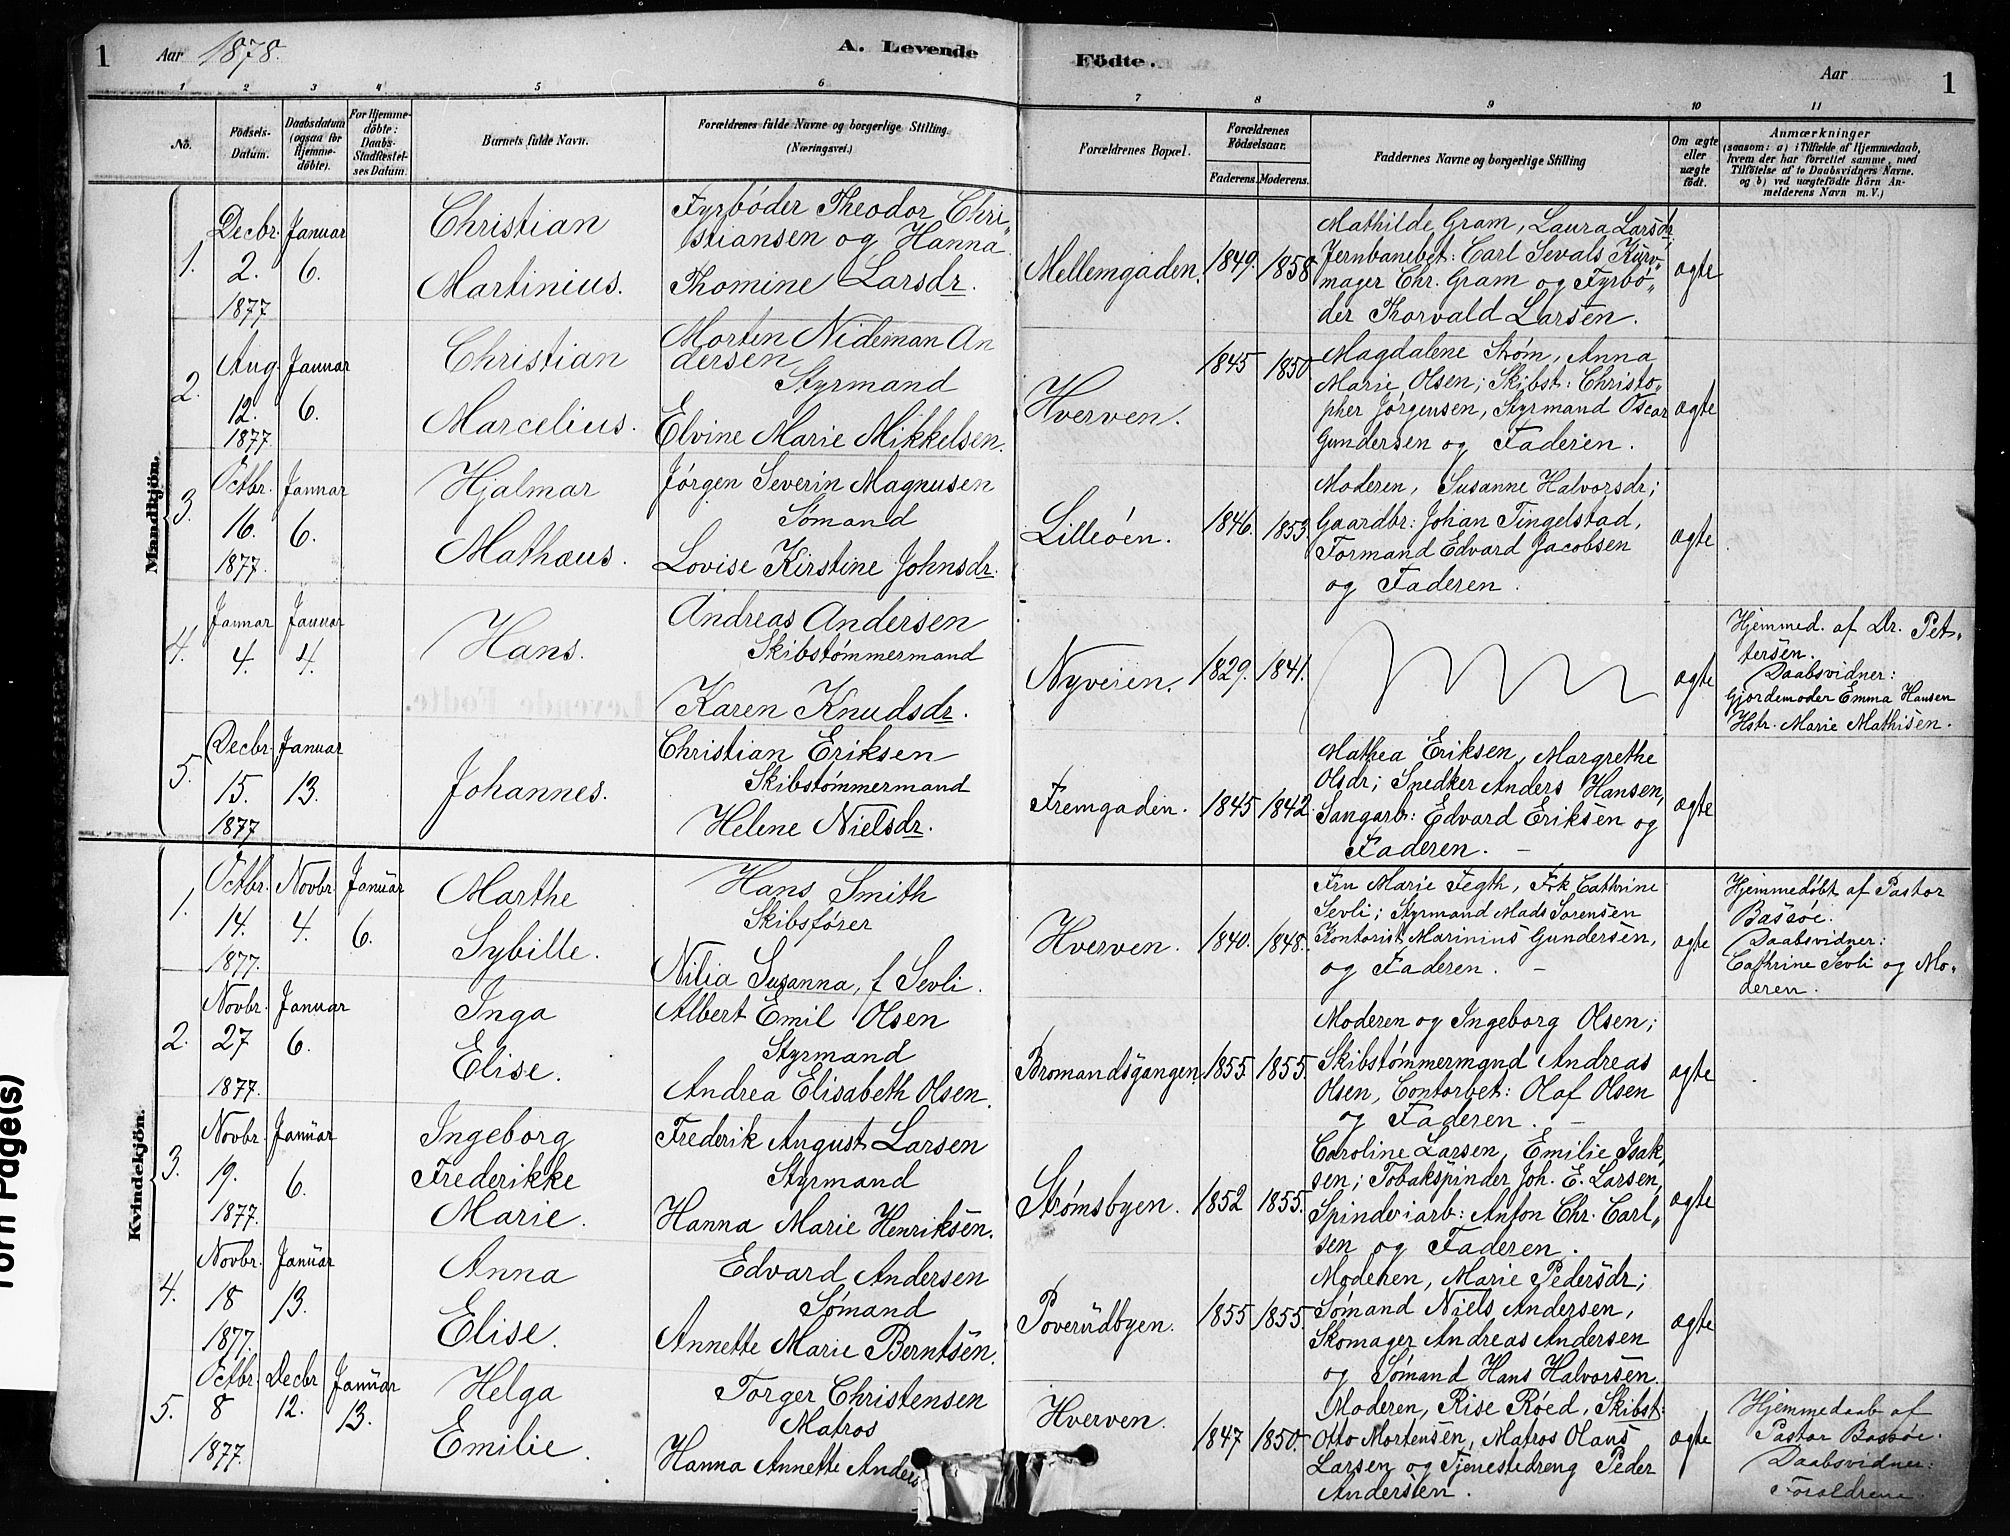 1 Aar 1878. A. Levende Födte. Aar 1
1 2 3 4 5 6 7 8 9 10 11
No. Födsels-Datum. Daabsdatum (ogsaa för Hjemme-döbte). For Hjemme-döbte: Daabs-Stadfæstel-ses Datum. Barnets fulde Navn. Forældrenes fulde Navne og borgerlige Stilling (Næringsvei.) Forældrenes Bopæl. Forældrenes Födselsaar. Faderens. Moderens. Faddernes Navne og borgerlige Stilling Om ægte eller uægte födt. Anmærkninger
(saasom: a) i Tilfælde af Hjemmedaab,
hvem der har forrettet samme, med
Tilföielse af to Daabsvidners Navne.
og b) ved uægtefödte Börn An-
melderens Navn m. V.)
Mandkjön.
1. Decbr 2. 1877 Januar 6.
Christian
Martinius.
Fyrbøder Theodor Chri-
stiansen og Hanna
Thomine Larsdr.
Mellemgaden. 1849. 1858
Mathilde Gram, Laura Larsdr;
Jernbanebet: Carl Sevals Kurv-
mager Chr. Gram og Fyrbø-
der Thorvald Larsen.
ægte
2. Aug 12. 1877 Januar 6.
Christian
Marcelius.
Morten Nideman An
dersen
Styrmand
Elvine Marie Mikkelsen.
Hverven. 1845 1850
Magdalene Strøm, Anna
Marie Olsen; Skibst: Christo-
pher Jørgensen, Styrmand Oscar
Gundersen og Faderen.
ægte
3. Octbr. 16. 1877. Januar 6.
Hjalmar
Mathæus.
Jørgen Severin Magnusen
Sømand
Lovise Kirstine Johnsdr.
Lilleøen. 1846. 1853.
Moderen, Susanne Halvorsdr;
Gaardbr: Johan Tingelstad,
Formand Edvard Jacobsen
og Faderen.
ægte
4. Januar 4. Januar 4.
Hans.
Andreas Andersen
Skibstømmermand
Karen Knudsdr.
Nyveien. 1829. 1841.
ægte
Hjemmed. af Dr. Pet-
tersen.
Daabsvidner:
Gjordemoder Emma Hansen
Hstr. Marie Mathisen.
5. Decbr 15. 1877 Januar 13.
Johannes.
Christian Eriksen
Skibstømmermand
Helene Nielsdr.
Fremgaden. 1845 1842.
Mathea Eriksen, Margrethe
Olsdr; Snedker Anders Hansen,
Sangarb: Edvard Eriksen og
Faderen. –
ægte
Kvindekjön.
1. Octbr. 14. 1877. Novbr 4. Januar 6.
Marthe
Sybille.
Hans Smith
Skibsfører
Nilia Susanna, f Sevli.
Hverven. 1840. 1848.
Fru Marie Fegth, Frk Cathrine
Sevli; Styrmand Mads Sørensen
Kontorist Marinius Gundersen,
og Faderen. –
ægte
Hjemmedøbt af Pastor
Bassøe.
Daabsvidner:
Cathrine Sevli og Mo-
deren.
2. Novbr. 27 1877. Januar 6.
Inga
Elise.
Albert Emil Olsen
Styrmand
Andrea Elisabeth Olsen.
Bromandsgangen 1855. 1855.
Moderen og Ingeborg Olsen;
Skibstømmermand Andreas
Olsen, Contorbet: Olaf Olsen
og Faderen. –
ægte
3. Novbr. 19. 1877. Januar 6.
Ingeborg
Frederikke
Marie.
Frederik August Larsen
Styrmand
Hanna Marie Henriksen.
Strømsbyen. 1852 1855.
Caroline Larsen, Emilie Isak-
sen; Tobakspinder Joh. E. Larsen,
Spinderiarb: Anton Chr. Carl-
sen og Faderen.
ægte
4. Novbr. 18 1877. Januar 13.
Anna
Elise.
Edvard Andersen
Sømand
Annette Marie Berntsen.
Poverudbyen. 1855 1855.
Moderen, Marie Pedersdr;
Sømand Niels Andersen,
Skomager Andreas Andersen
og Sømand Hans Halvorsen.
ægte
5. Octbr. 8 1877. Decbr 12. Januar 13.
Helga
Emilie.
Torger Christensen
Matros
Hanna Annette Anders
Hverven. 1847 1850.
Moderen, Rise Røed, Skibst:
Otto Mortensen, Matros Olaus
Larsen og Tjenestedreng Peder
Andersen.
ægte
Hjemmedaab af
Pastor Bassøe.
Daabsvidner:
Forældrene.
Torn Page(s)